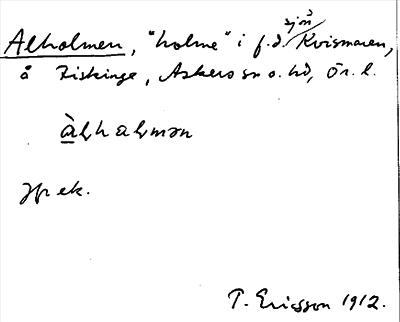 Alholmen, "holme" i f.d. sjön Kvismaren,
å Riskinge, Askers sn o. hd, Ör. l.
àlhalmən
Jfr ek.
T. Ericsson 1912.